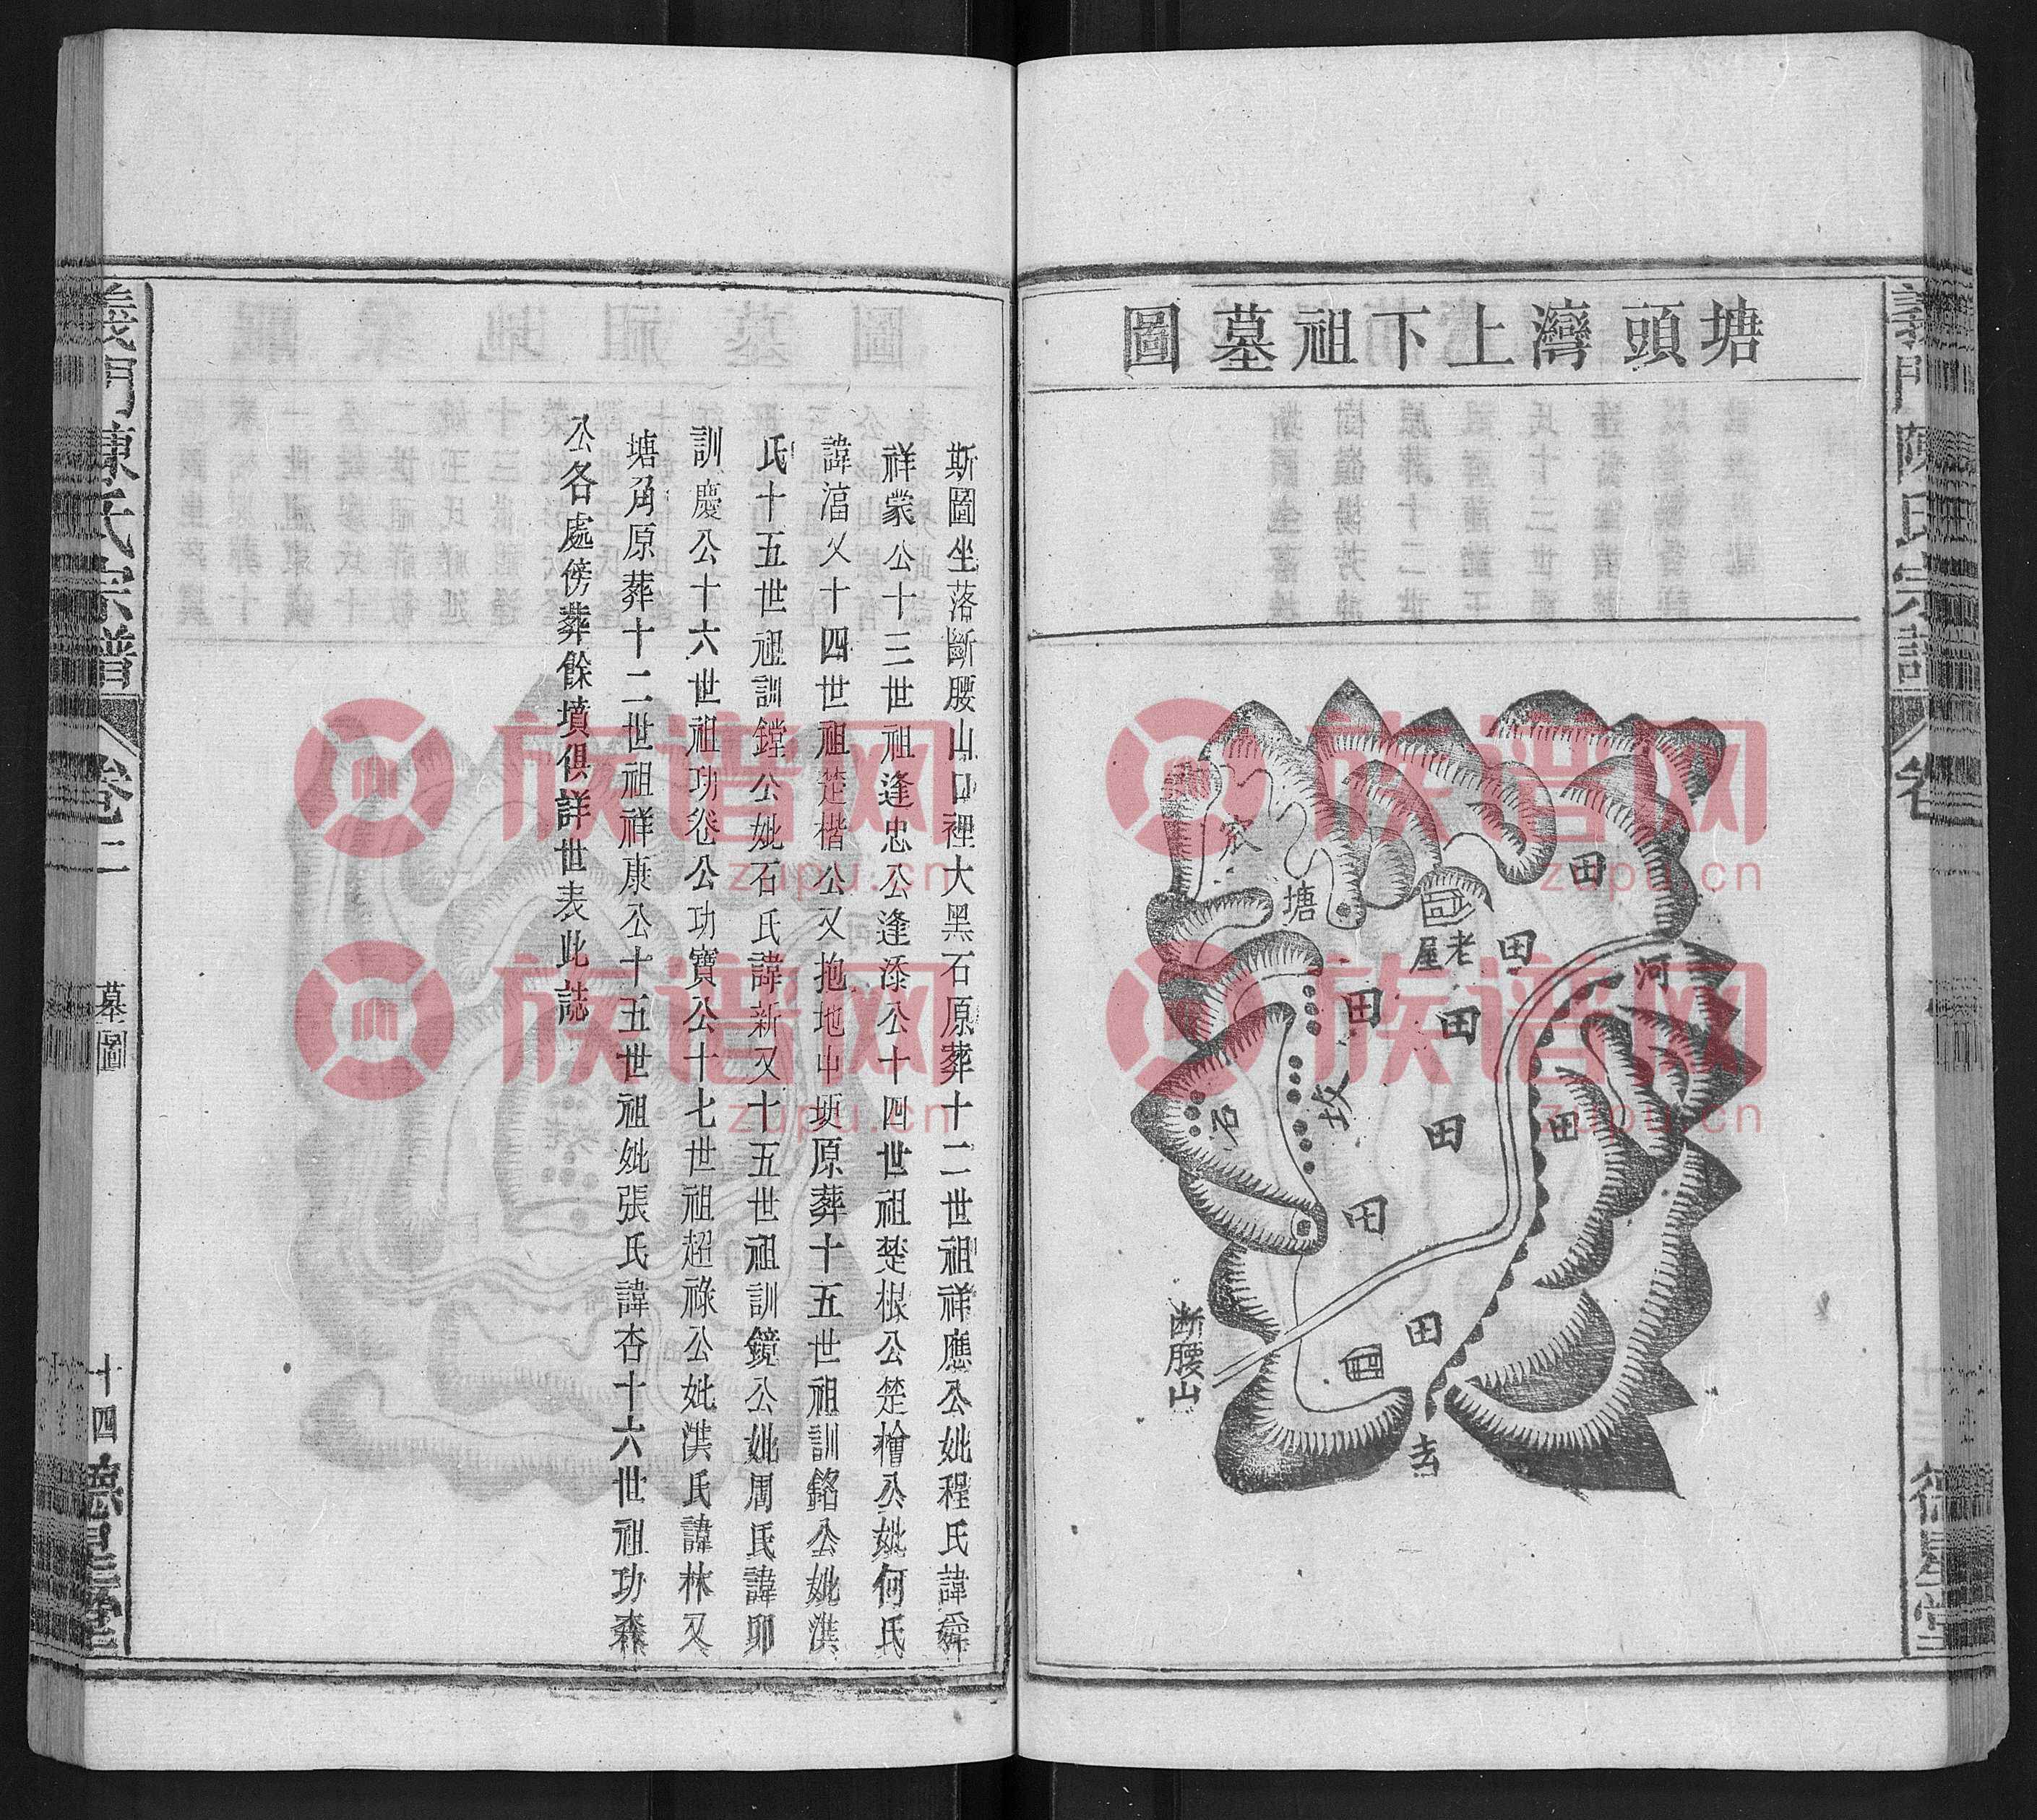 塘頭灣上下祖墓圖
田
塘
老屋
田
河
田
田
坟
石
田
田
田
断腰山
田
義門陳氏宗譜
卷
德星堂
斯圖坐落斷腰山口裡大黑石原葬十二世祖祥應公妣程氏諱舜
祥業公十三世祖逢忠公逢添公十四世祖楚根公楚檜公妣何氏
諱㵮又十四世祖楚楷公又抱地中頃原葬十五世祖訓銘公妣洪
氏十五世祖訓鏜公妣石氏諱新又十五世祖訓鏡公妣周氏諱卯
訓慶公十六世祖功卷公功寶公十七世祖超祿公妣洪氏諱林又
塘角原葬十二世祖祥康公十五世祖妣張氏諱杏十六世祖功森
公各處傍葬餘墳俱詳世表此誌
義門陳氏宗譜
卷二
墓圖
十四
德星堂
族谱网
zupu.cn
族谱网
zupu.cn
族谱网
zupu.cn
族谱网
zupu.cn